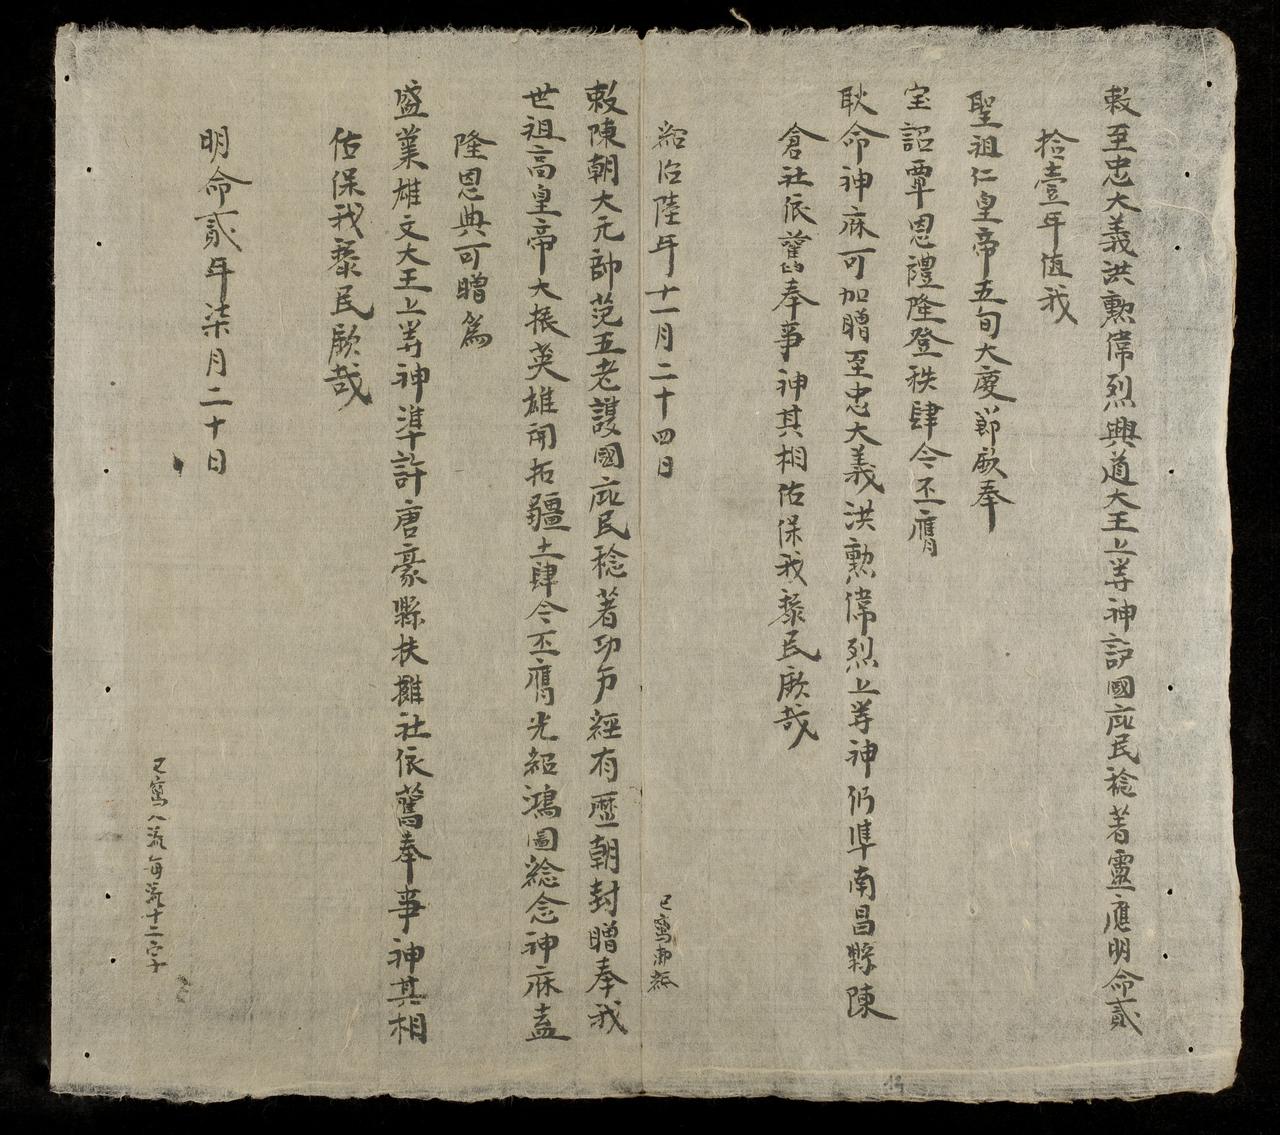 敕至忠大義洪勲偉烈興道大王上等神護國庇民稔著靈應明命貳
拾壹年值我
聖祖仁皇帝五旬大慶節欽奉
宝詔覃恩禮隆登秩肆今丕膺
耿命神庥可加贈至忠大義洪勲偉烈上等神仍準南昌縣陳
倉社依舊奉事神其相佑保我黎民欽哉
紹治陸年十一月二十四日
已寫
敕陳朝大元帥范五老護國庇民稔著功力經有歷朝封贈奉我
世祖高皇帝大振英雄開拓疆土肆今丕膺光紹鴻圖緬念神庥盍
隆恩典可贈爲
盛業雄文大王上等神準許唐豪縣扶擁社依舊奉事神其相
佑保我黎民欽哉
明命貳年柒月二十日
已寫八流每流十二字